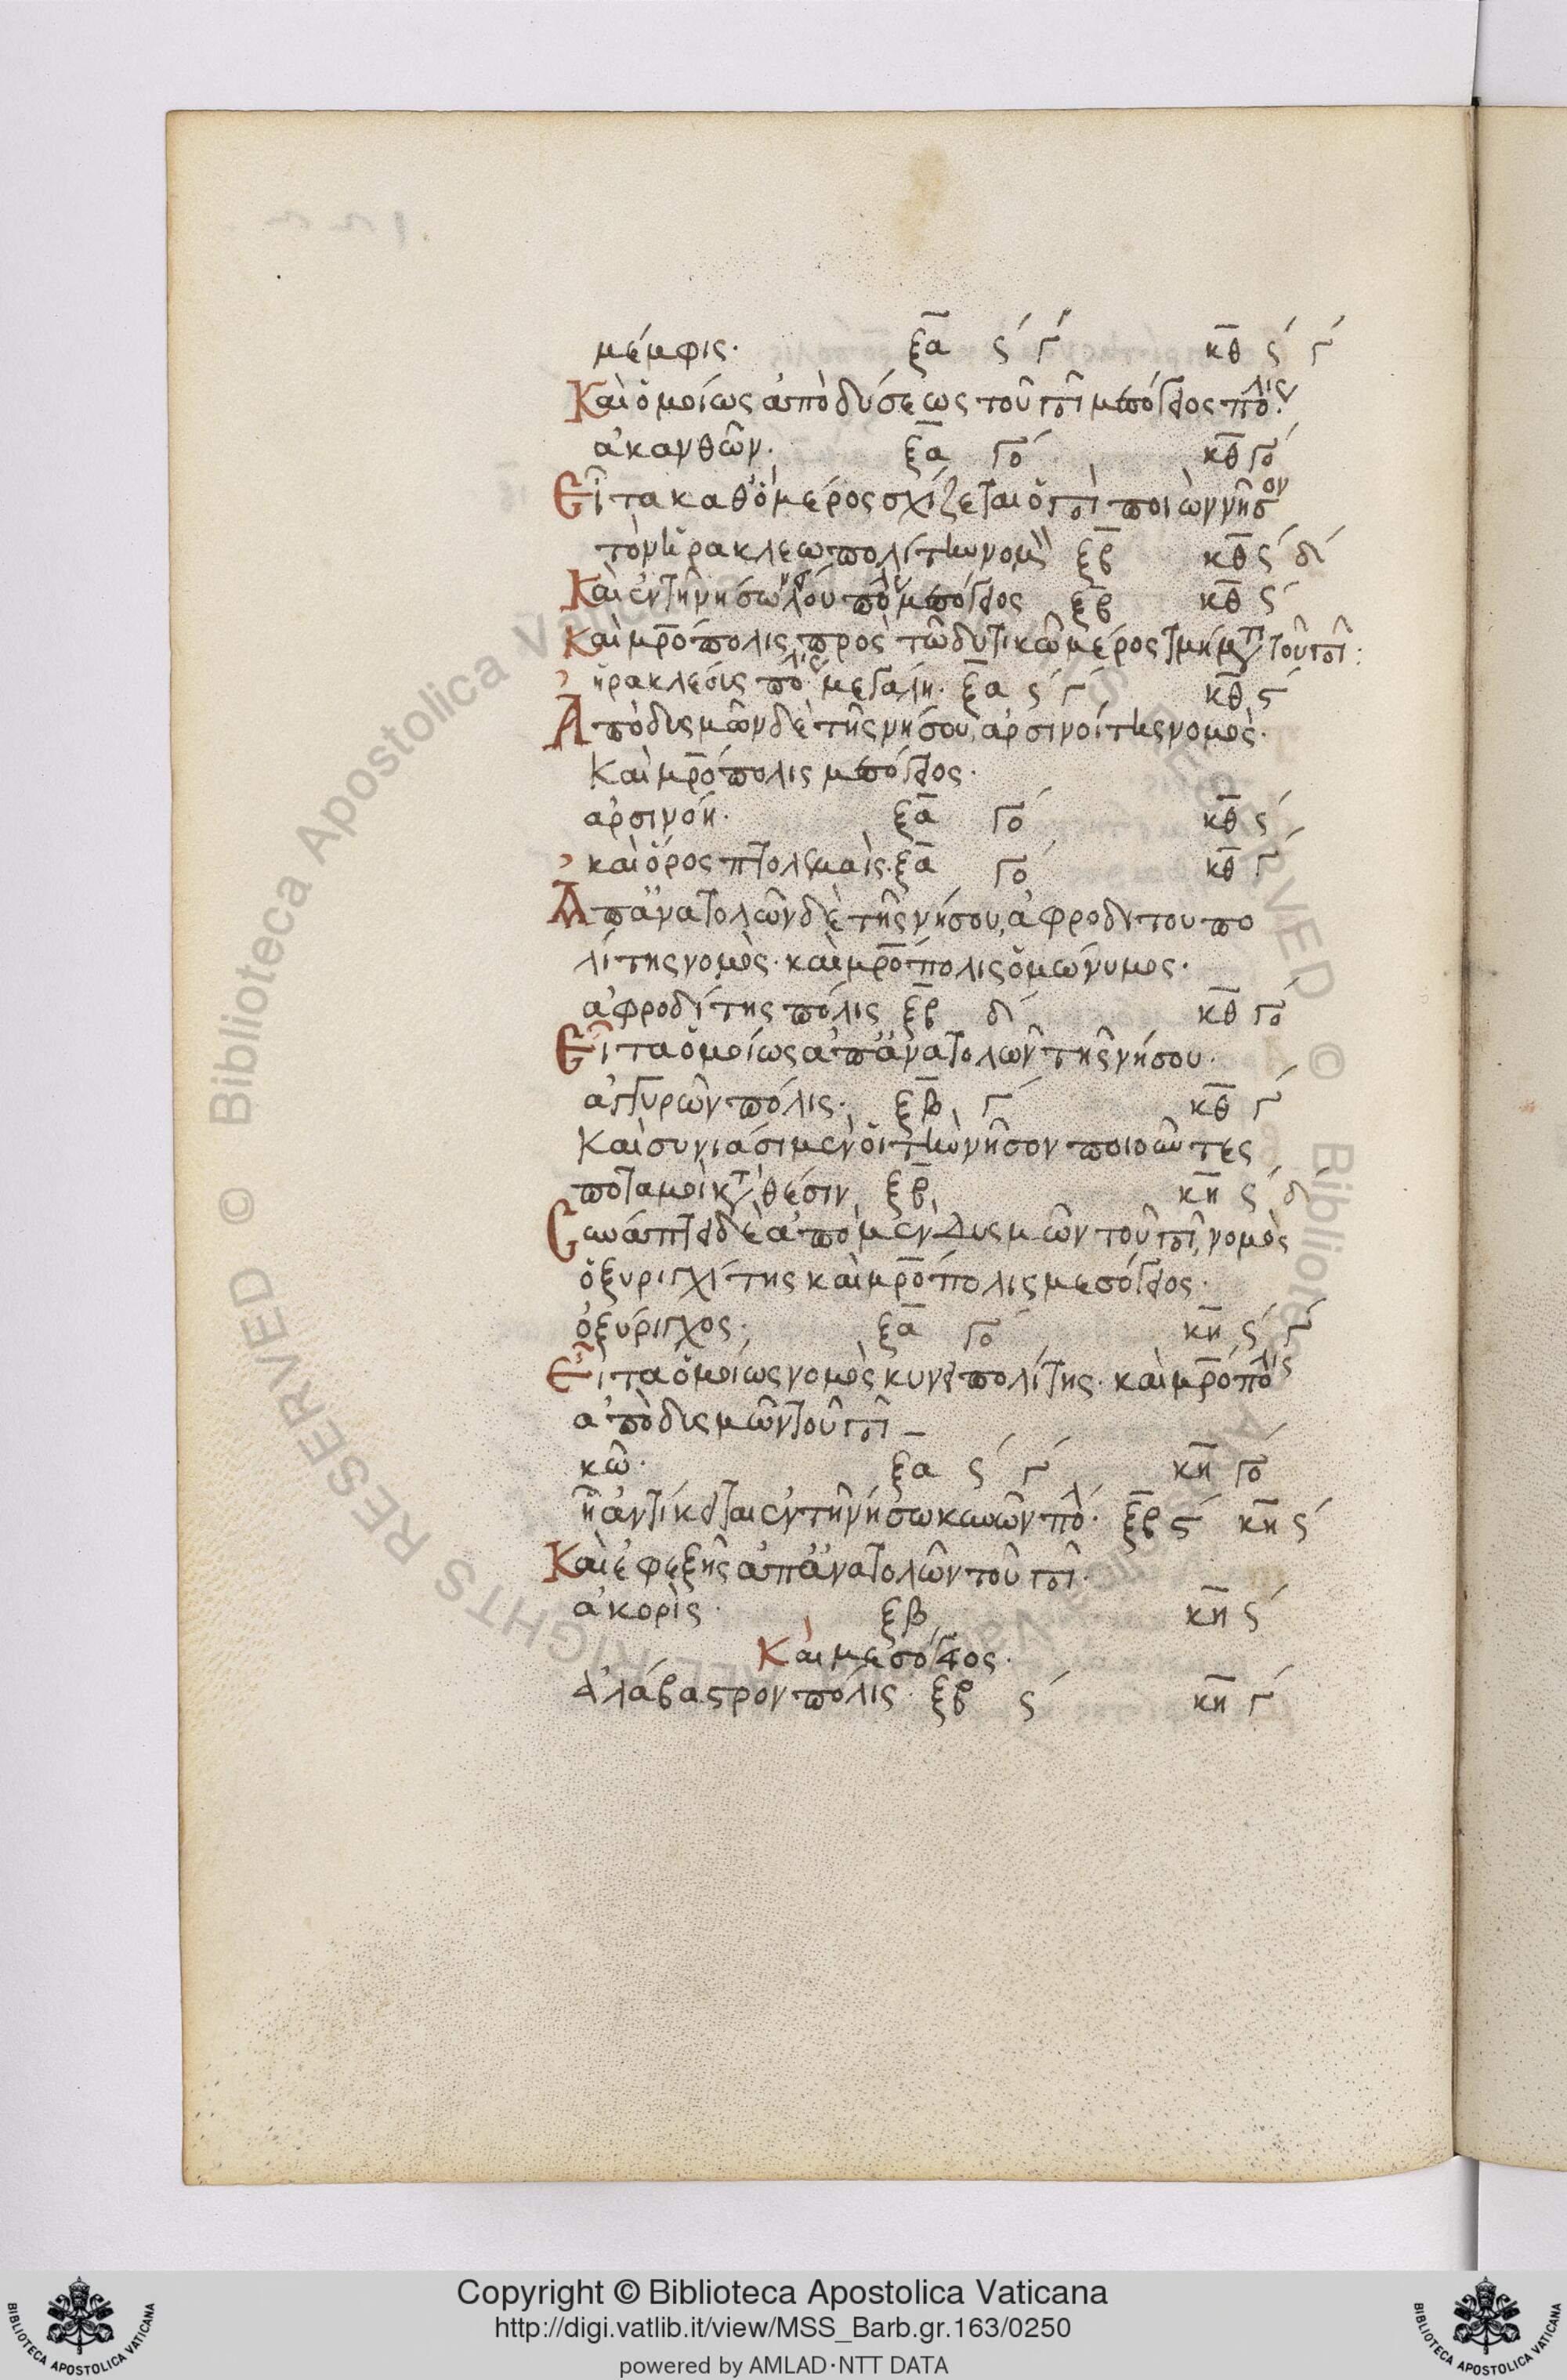 μέμφις· ξα ϛ γ κθ ϛ γ
Καὶ ὁμοίως ἀπὸ δύσεως τοῦ ποτ μεσόγειος πόλις
ἀκανθῶν· ξα γο κθ γο
Εἶτα καθ' ὃ μέρος σχίζεται ὁ ποτ ποιῶν νῆσον
τὸν ἡρακλεωπολίτην νομὸν ξβ κθ ϛ δ
Καὶ ἐν τῆ νήσω πό μεσόγειος ξβ κθ ϛ
Καὶ μρόπολις πρὸς τῶ δυτικῶ μέρος τμήματι τοῦ ποτ:
ἡρακλέους πόλις μεγάλη· ξα ϛ γ κθ ϛ
Ἀπὸ δυσμῶν δὲ τῆς νήσου, ἀρσινοίτης νομὸς·
Καὶ μρόπολις μεσόγειος·
ἀρσινόη· ξα γο κθ ϛ
καὶ ὅρος πτολεμαὶς· ξα γο κθ γ
Ἀπ' ἀνατολῶν δὲ τῆς νήσου, ἀφροδιτοπο
λίτης νομὸς· καὶ μρόπολις ὁμώνυμος·
ἀφροδίτης πόλις ξβ δ κθ γο
Εἶτα ὁμοίως ἀπ' ἀνατολῶν τῆς νήσου·
ἀγκυρῶν πόλις· ξβ γ κθ γ
Καὶ συνιάσι μὲν οἱ τὴν νῆσον ποιοῦντες
ποταμοὶ κατὰ θέσιν ξβ κη ϛ δ
Συνάπτει δὲ ἀπὸ μὲν δυσμῶν τοῦ ποτ, νομὸς
ὀξυριγχίτης καὶ μρόπολις μεσόγειος·
ὀξύριγχος· ξα γο κη ϛ γ
Εἶτα ὁμοίως νομὸς κυνοπολίτης· καὶ μρόπολις
ἀπὸ δυσμῶν τοῦ ποτ
κῶ· ξα ϛ γ κη γο
ἧ ἀντίκειται ἐν τῆ νήσω κυνῶν πόλ· ξβ ϛ κη ϛ
Καὶ ἐφεξῆς ἀπ' ἀνατολῶν τοῦ ποτ·
ἀκορὶς· ξβ κη ϛ
Καὶ μεσόγειος·
ἀλάβαστρον πόλις· ξβ ϛ κη γ
Copyright © Biblioteca Apostolica Vaticana
http://digi.vatlib.it/view/MSS_Barb.gr.163/0250
powered by AMLAD·NTT DATA